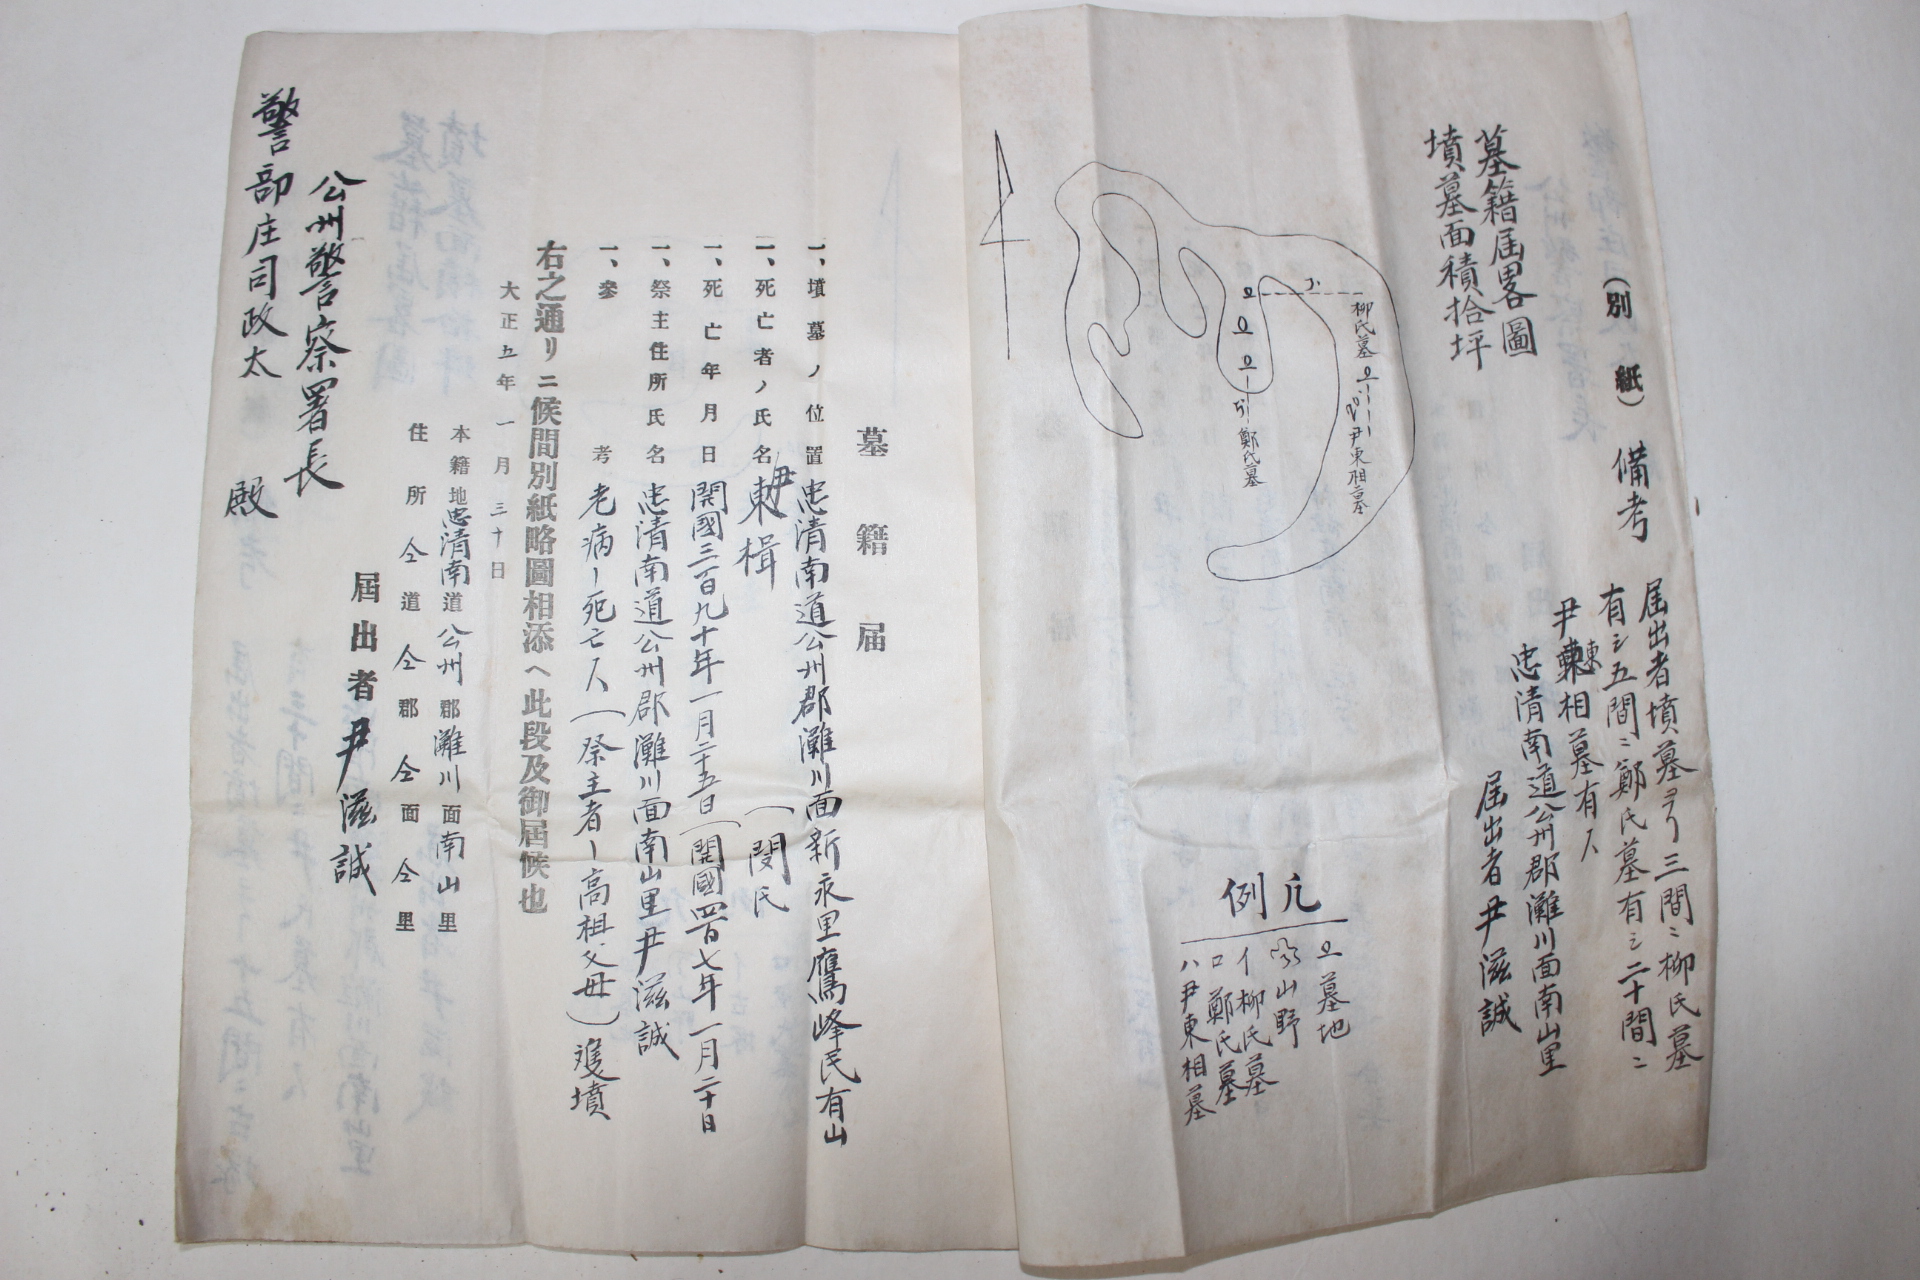 (別紙)
墓籍届畧圖
墳墓面積拾坪
柳氏墓
尹東相墓
鄭氏墓
備考
届出者墳墓ヨリ三間ニ柳氏墓
有シ五間ニ鄭氏墓有シ二十間ニ
尹東相墓有ス
忠清南道公州郡灘川面南山里
届出者尹滋誠
凡例
墓地
山野
イ柳氏墓
ロ鄭氏墓
ハ尹東相墓
墓籍届
一、墳墓ノ位置 忠清南道公州郡灘川面新永里鷹峰民有山
一、死亡者ノ氏名 尹東楫 (閔氏
一、死亡年月日 開國三百九十年一月二十五日(開國四百七年一月二十日
一、祭主住所氏名 忠清南道公州郡灘川面南山里尹滋誠
一、參考 老病ノ死亡人(祭主者ノ高祖父母)雙墳
右之通リニ候間別紙略圖相添ヘ此段及御届候也
大正五年一月三十日
本籍地忠清南道公州郡灘川面南山里
住所仝道仝郡仝面仝里
届出者尹滋誠
公州警察署長
警部庄司政太 殿